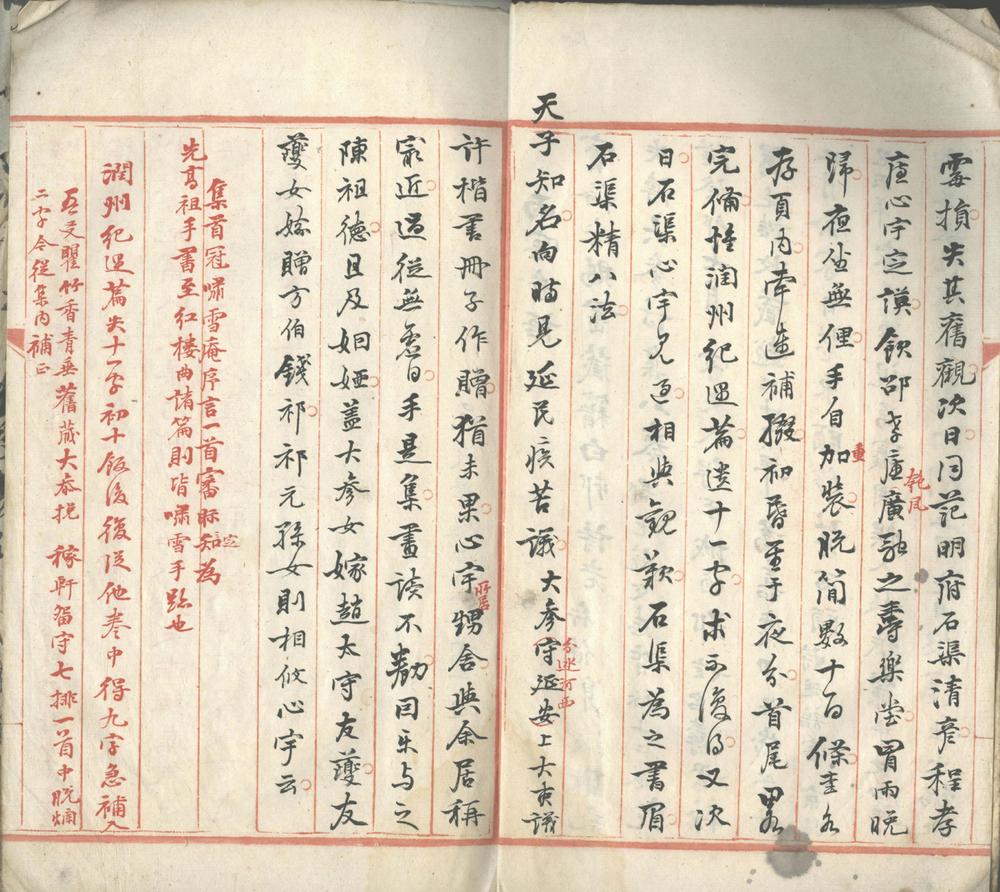 霉損失其舊觀次日同范明府石渠清彥程孝
廉心宇定謨飲邵孝廉廣融之壽樂堂冒雨晚
執凡
歸夜坐無俚手自加裝脫簡數十百條重
存頁內牽連補掇初昏至于夜分首尾畧
完備惟潤州紀遇篇遺十一字求不復得又次
日石渠心宇見過相與觀歎石渠為之書眉
石渠精八法
天子知名向時見延民疾苦議大參守延安上大夫議
分巡河西
許楷書冊子作贈猶未果心宇甥舍與余居稱
所居
家近過從無虛日手是集晝讀不勸因示與之
陳祖德且及姻婭蓋大參女嫁趙太守友夔友
夔女妷贈方伯錢祁祁元孫女則相攸心宇云
集首冠嘯雪庵序言一首審眎知為
定
先高祖手書至紅樓曲諸篇則皆嘯雪手跡也
潤州紀遇篇失十一字初十飯後復從他卷中得九字急補入
吾友瞿竹香青垂舊藏大參挽 稼軒留守七排一首中脫爛
二字今從集內補正